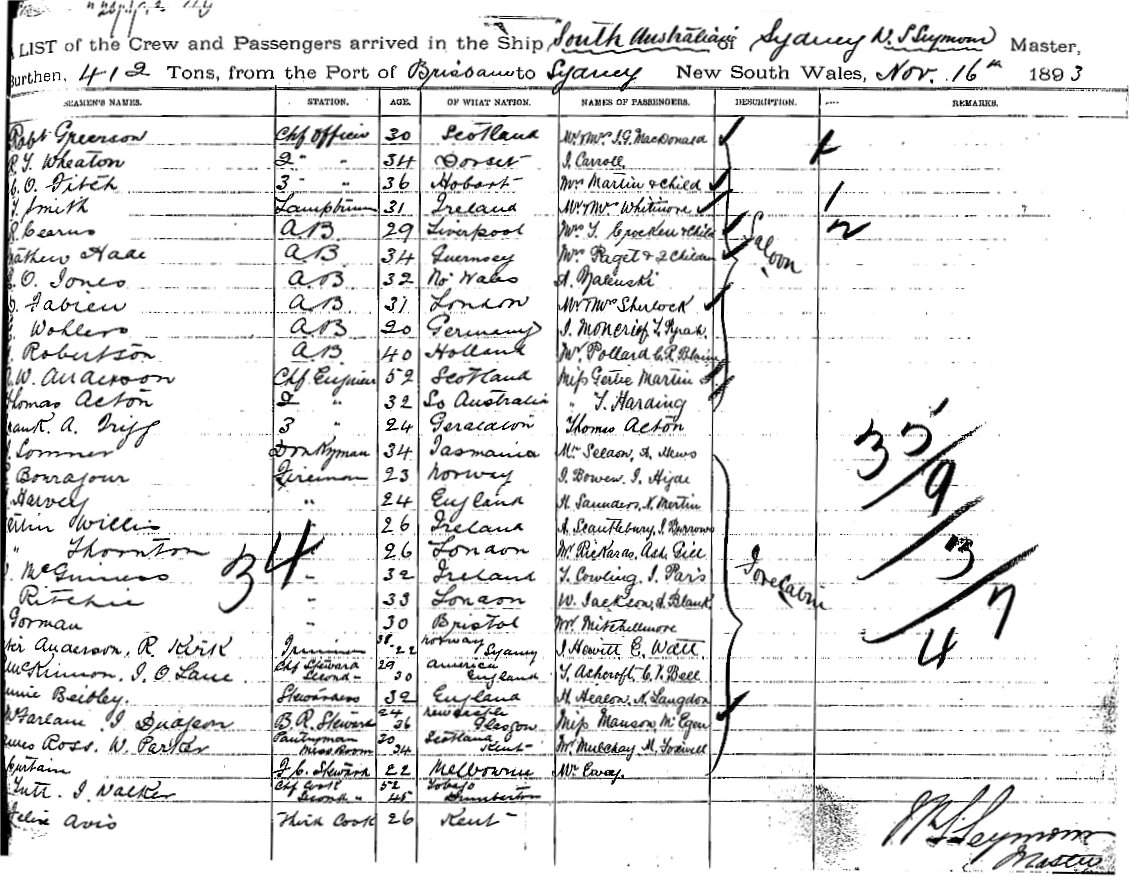 LIST of the Crew and Passengers arrived in the Ship South Australian of Sydney W. S Seymour Master,
Burthen, 412 Tons, from the Port of Brisbane to Sydney New South Wales, Nov. 16th 1893
SEAMEN'S NAMES. STATION. AGE. OF WHAT NATION. NAMES OF PASSENGERS. DESCRIPTION. REMARKS.
Robt Greerson Chf Officer 30 Scotland Mr & Mrs J.G. MacDonald
Wheaton 2 " " 34 Dorset J. Carroll
O. Fitch 3 " " 36 Hobart Mrs Martin & Child 1
Smith Lamptrimr 31 Ireland Mr & Mrs Whitmore
Cearns AB 29 Liverpool Mrs T. Crocken & Child 2
Hade AB 34 Guernsey Mrs Paget & 2 Children Saloon
O. Jones AB 32 No Wales A. Zalenski
Fabien AB 31 London Mr & Mrs Sherlock
Wohlers AB 20 Germany J. Moncrief
Robertson AB 40 Holland Mr. Pollard C.R. Blaine
W. Anderson Chf Engineer 52 Scotland Miss Gertie Martin
Thomas Acton 2 " 32 So Australia " T. Harding
Frank. A. Tripp 3 " 24 Geraldton Thomas Acton
Sommer Donkyman 34 Tasmania A. Hews
Bonrajour Fireman 23 Norway J. Bowen. J. Hyde
Harvey " 24 England H. Saunders, N. Martin
Willis 26 Ireland J. Burrows
" Thornton 26 London Mr Rickards
McGuiness " 32 Ireland T. Cowling. J. Paris Forecabin
Ritchie " 33 London W. Jackson, A. Blank
Gorman " 30 Bristol Mr Mitchellmore
34
35/9
3/7
4
Anderson, R. Kirk Trimmer 38 22 Norway Sydney J Hewitt G. Watt
McKinnon, J. O Lane Chf Steward Second " 29 30 America England T. Ashcroft, C. V. Bell
Beibley. Stewardess 32 England H. Healon, A. Langdon
McFarlane J Dudgeon B. R. Steward 24 36 Newcastle Glasgow Miss Manson, McEgan
James Ross. W. Parker Pantryman Mess Room 20 24 Scotland Kent Mr Mulchay M. Foxwell
F. C. Steward 22 Melbourne Mr Eway.
Tutt. J. Walker Chf Cook Second " 52 45 Tobago Dumbarton
Avis Third Cook 26 Kent
W. S. Seymour
Master